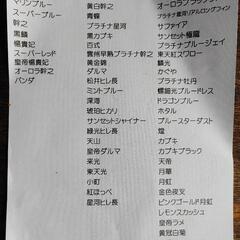 マリンブルー
スーパーブルー
幹之
黒鱗
楊貴妃
スーパーレッド
皇帝楊貴妃
オーロラ幹之
パンダ
黄白幹之
青蝶
プラチナ星河
黒カブキ
百式
雲州早熟プラチナ幹之
黄金錦
ダルマ
松井ヒレ長
ミント
深海
琥珀ヒカリ
サンセットシャイナー
緑光ヒレ長
天山
皇帝ダルマ
来光
東天光
小町
紅ほっぺ
星河ヒレ長
プラチナ星河リアルロングフィン
サファイア
サンセット極龍
プラチナブルージェイ
東天紅スワロー
鱗光
かぐや
プラチナ牡丹
螺鈿光ブルードレス
ドラゴンブルー
ホタル
ブルースターダスト
煌
カブキブラック
天帝
月華
月虹
金色夜叉
ピンクゴールド月虹
レモンスカッシュ
皇帝ラメ
黄冠白菊